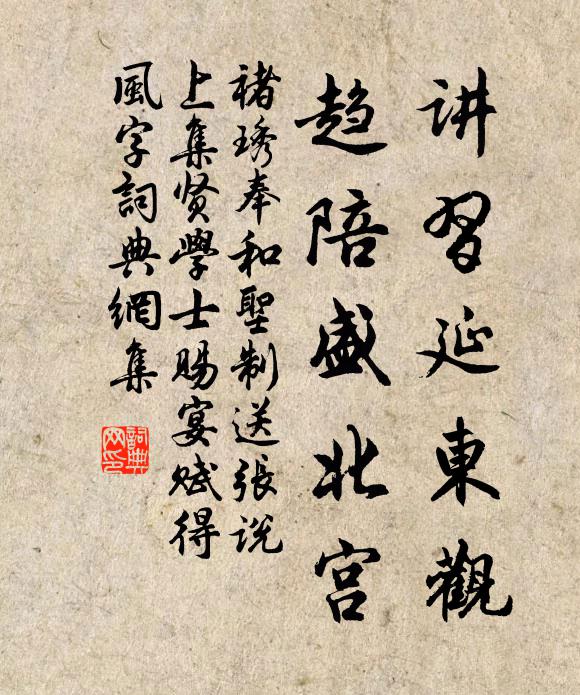 讲習延東觀
趋陪盛北宫
褚琇奉和聖制送張说
上集贤學士賜宴赋得
風字詞典網集
詞典网印